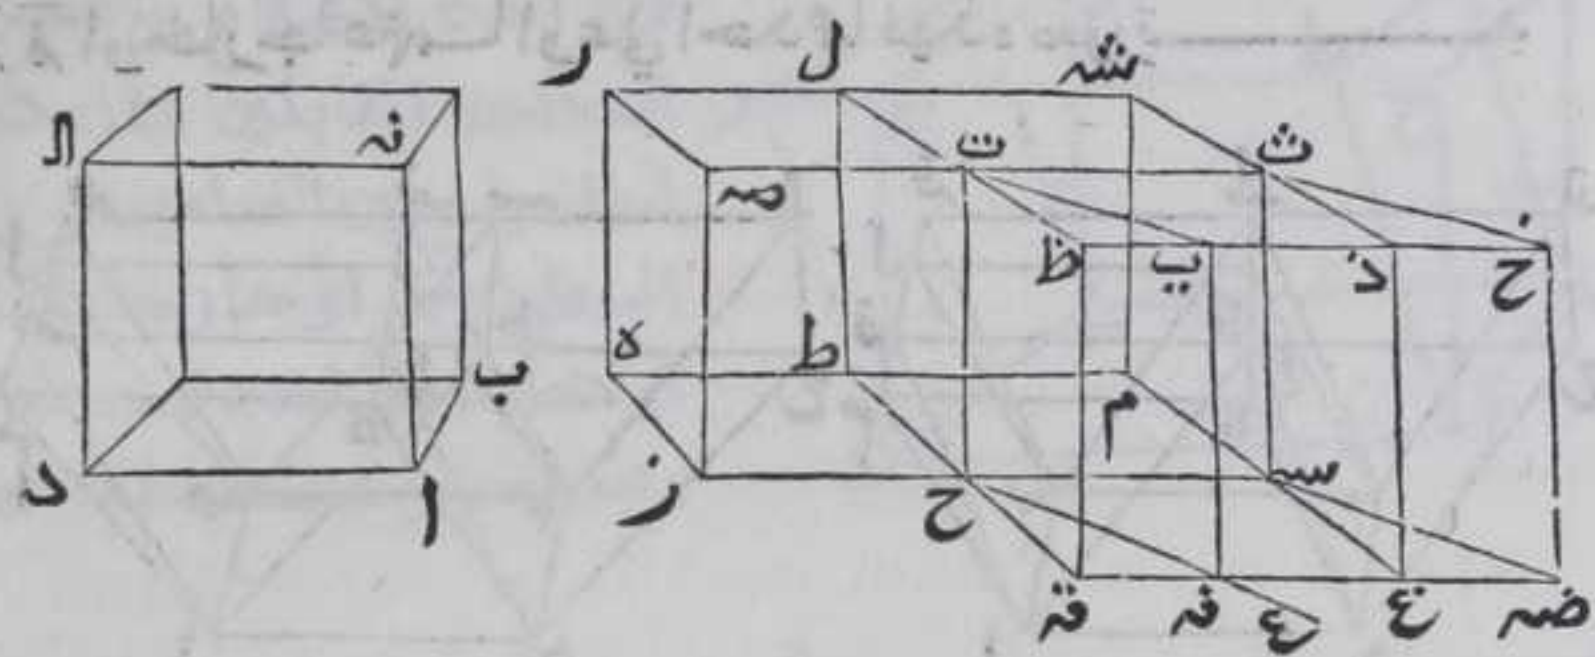 ر ل ش
ك ن ت ث
ص
ظ ي ذ خ
ه ط
ب م
د ا ز ح س
ق ف ع غ ض